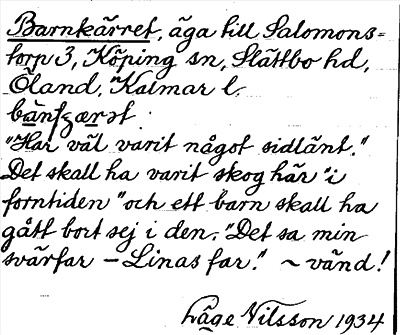 Barnkärret, äga till Salomons=
torp 3, Köping sn, Slättbo hd,
Öland, Kalmar l.
"Har väl varit något sidlänt."
Det skall ha varit skog här "i
forntiden" och ett barn skall ha
gått bort sej i den. "Det sa min
svärfar – Linas far." ~ vänd!
Låge Nilsson 1934